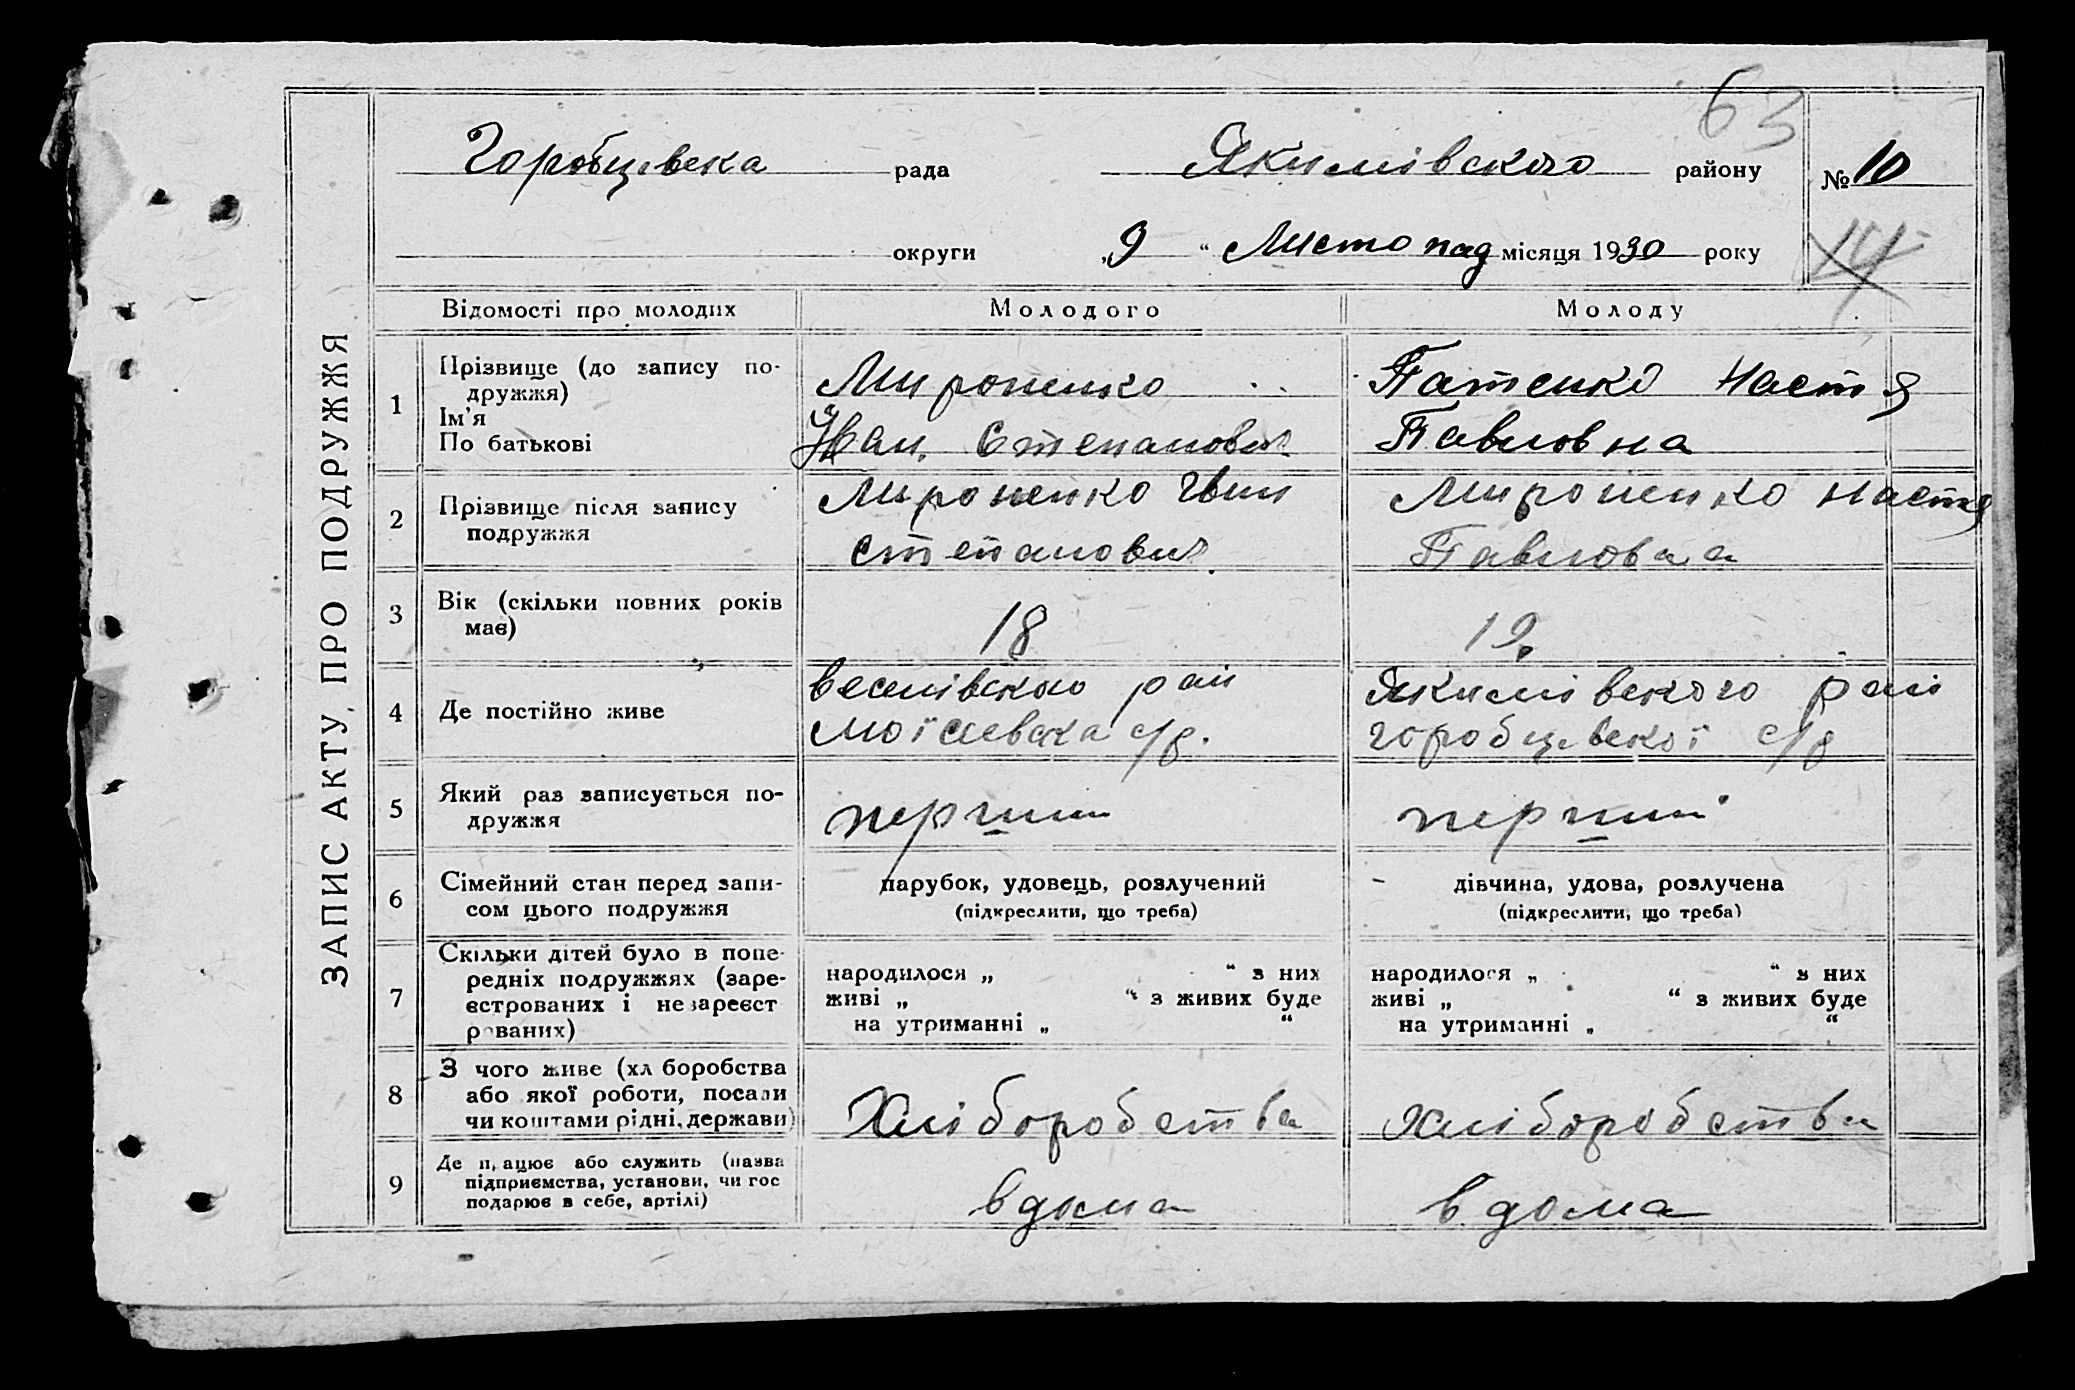 63
Горобцівска рада Якимівского району № 10
округи „9 “ Листопад місяця 1930 року
14
ЗАПИС АКТУ ПРО ПОДРУЖЖЯ
Відомості про молодих Молодого Молоду
1 Прізвище (до запису по-
дружжя)
Ім’я
По батькові
Мироненко
Іван Степанович
Патенко Настя
Павловна
2 Прізвище після запису
подружжя
Мироненко Іван
Степанович
Мироненко Настя
Павловна
3 Вік (скільки повних років
має)
18
19
4 Де постійно живе
Веселівского рай
Моїсеевска с/р.
Якимівского рай
Горобцівскої с/р
5 Який раз записується по-
дружжя
перший
перший
6 Сімейний стан перед запи-
сом цього подружжя
парубок, удовець, розлучений
(підкреслити, що треба)
дівчина, удова, розлучена
(підкреслити, що треба)
7 Скільки дітей було в попе-
редніх подружжях (заре-
єстрованих і незареєст
рованих)
народилося „ “ з них
живі „ “ з живих буде
на утриманні „ “
народилося „ “ з них
живі „ “ з живих буде
на утриманні „ “
8 З чого живе (хл боробства
або якої роботи, посади
чи коштами рідні, держави)
Хліборобства
Хліборобства
9 Де працює або служить (назва
підприємства, установи, чи гос
подарює в себе, артілі)
вдома
вдома